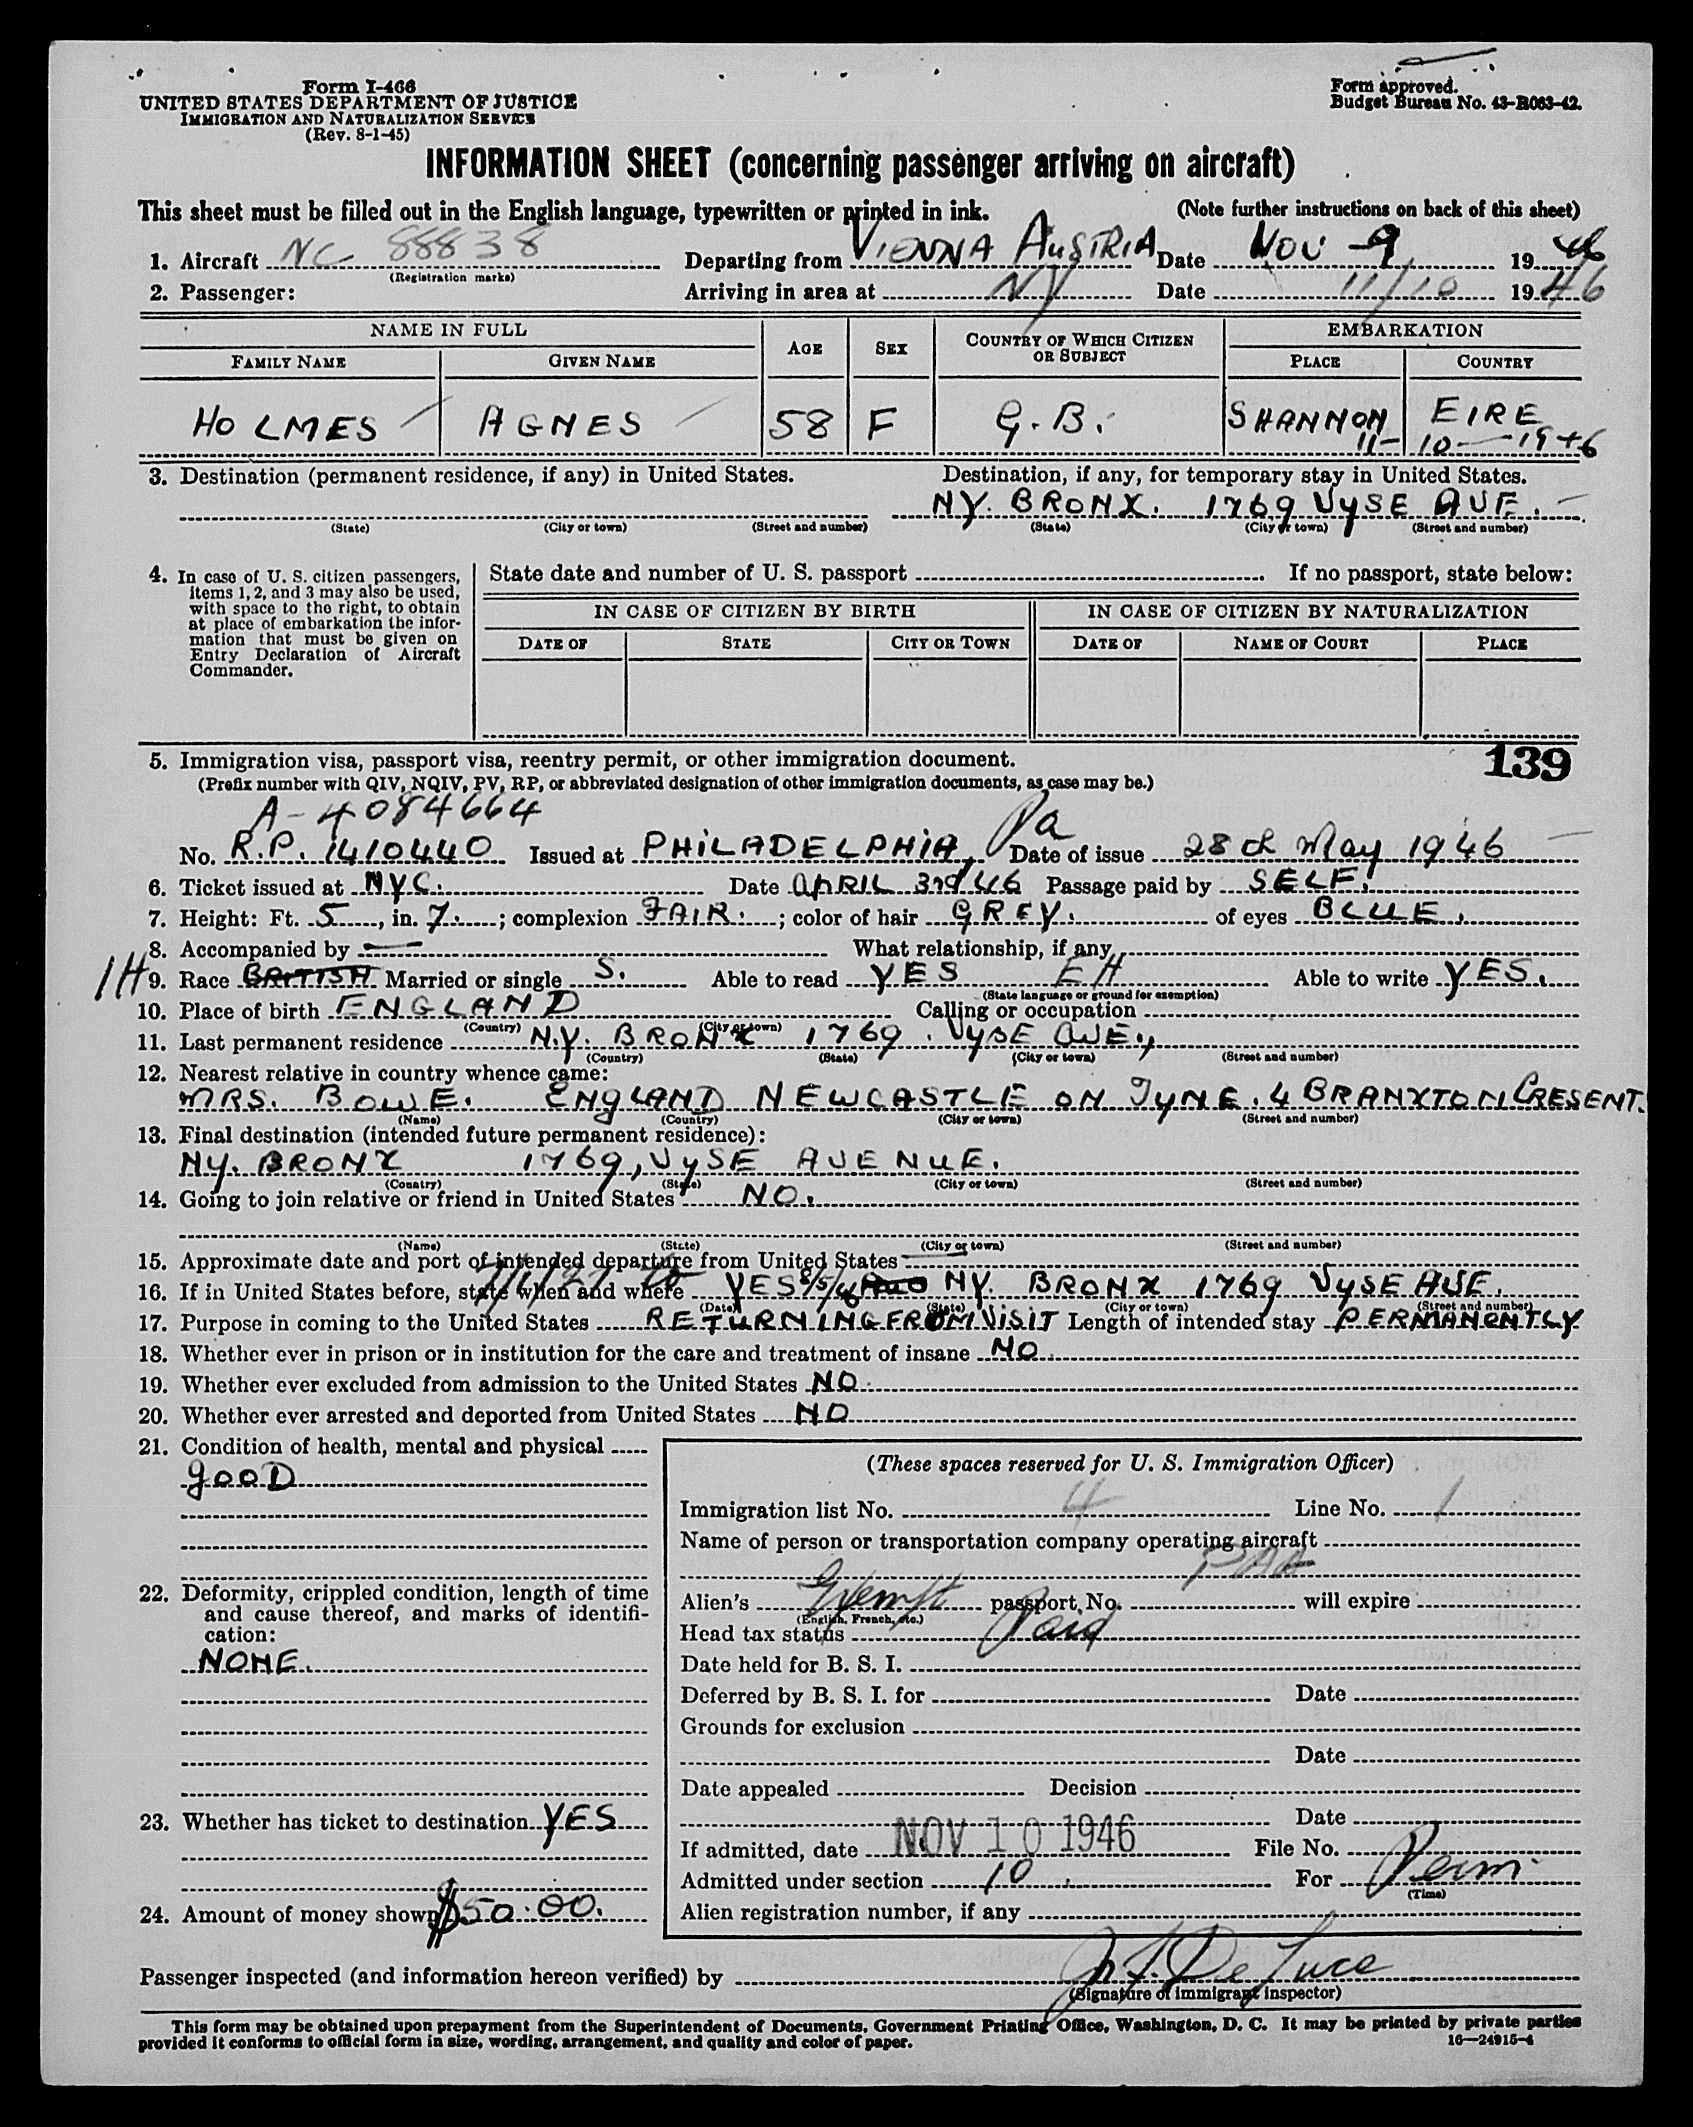 Form I-466
UNITED STATES DEPARTMENT OF JUSTICE
IMMIGRATION AND NATURALIZATION SERVICE
(Rev. 8-1-45)
Form approved.
Budget Bureau No. 43-R063-42.
INFORMATION SHEET (concerning passenger arriving on aircraft)
This sheet must be filled out in the English language, typewritten or printed in ink.
(Note further instructions on back of this sheet)
1. Aircraft NC 88838 Departing from VIENNA AUSTRIA Date NOV 9 1946
(Registration marks)
2. Passenger: Arriving in area at NY Date 11/10 1946
NAME IN FULL AGE SEX COUNTRY OF WHICH CITIZEN OR SUBJECT EMBARKATION
FAMILY NAME GIVEN NAME PLACE COUNTRY
HOLMES AGNES 58 F G.B. SHANNON EIRE
11-10-1946
3. Destination (permanent residence, if any) in United States. Destination, if any, for temporary stay in United States.
NY. BRONX. 1769 VYSE AVE.
(State) (City or town) (Street and number) (State) (City or town) (Street and number)
4. In case of U. S. citizen passengers, items 1, 2, and 3 may also be used, with space to the right, to obtain at place of embarkation the information that must be given on Entry Declaration of Aircraft Commander.
State date and number of U. S. passport If no passport, state below:
IN CASE OF CITIZEN BY BIRTH IN CASE OF CITIZEN BY NATURALIZATION
DATE OF STATE CITY OR TOWN DATE OF NAME OF COURT PLACE
139
5. Immigration visa, passport visa, reentry permit, or other immigration document.
(Prefix number with QIV, NQIV, PV, RP, or abbreviated designation of other immigration documents, as case may be.)
A-4084664
No. R.P. 1410440 Issued at PHILADELPHIA, Pa Date of issue 28th May 1946
6. Ticket issued at NYC. Date APRIL 3rd 46 Passage paid by SELF.
7. Height: Ft. 5, in. 7.; complexion FAIR.; color of hair GREY. of eyes BLUE.
8. Accompanied by — What relationship, if any
9. Race BRITISH Married or single S. Able to read YES EH Able to write YES.
(State language or ground for exemption)
10. Place of birth ENGLAND Calling or occupation
(Country) (City or town)
11. Last permanent residence N.Y. BRONX 1769. VYSE AVE.,
(Country) (State) (City or town) (Street and number)
12. Nearest relative in country whence came:
MRS. BOWE. ENGLAND NEWCASTLE ON TYNE. 4 BRANXTON CRESENT.
(Name) (Country) (City or town) (Street and number)
13. Final destination (intended future permanent residence):
NY. BRONX 1769, VYSE AVENUE.
(Country) (State) (City or town) (Street and number)
14. Going to join relative or friend in United States NO.
(Name) (State) (City or town) (Street and number)
15. Approximate date and port of intended departure from United States —
16. If in United States before, state when and where YES NY. BRONX 1769 VYSE AVE.
(Date) (State) (City or town) (Street and number)
17. Purpose in coming to the United States RETURNING FROM VISIT Length of intended stay PERMANENTLY
18. Whether ever in prison or in institution for the care and treatment of insane NO
19. Whether ever excluded from admission to the United States NO.
20. Whether ever arrested and deported from United States NO
21. Condition of health, mental and physical
GOOD
22. Deformity, crippled condition, length of time and cause thereof, and marks of identification:
NONE.
23. Whether has ticket to destination YES
24. Amount of money shown $50.00.
(These spaces reserved for U. S. Immigration Officer)
Immigration list No. 4 Line No. 1
Name of person or transportation company operating aircraft
PAA
Alien's Exempt passport No. will expire
(English, French, etc.)
Head tax status Paid
Date held for B. S. I.
Deferred by B. S. I. for Date
Grounds for exclusion
Date
Date appealed Decision
Date
If admitted, date NOV 10 1946 File No.
Admitted under section 10 For Perm.
(Time)
Alien registration number, if any
Passenger inspected (and information hereon verified) by De Luca
(Signature of immigrant inspector)
This form may be obtained upon prepayment from the Superintendent of Documents, Government Printing Office, Washington, D. C. It may be printed by private parties
provided it conforms to official form in size, wording, arrangement, and quality and color of paper. 16—24915-4